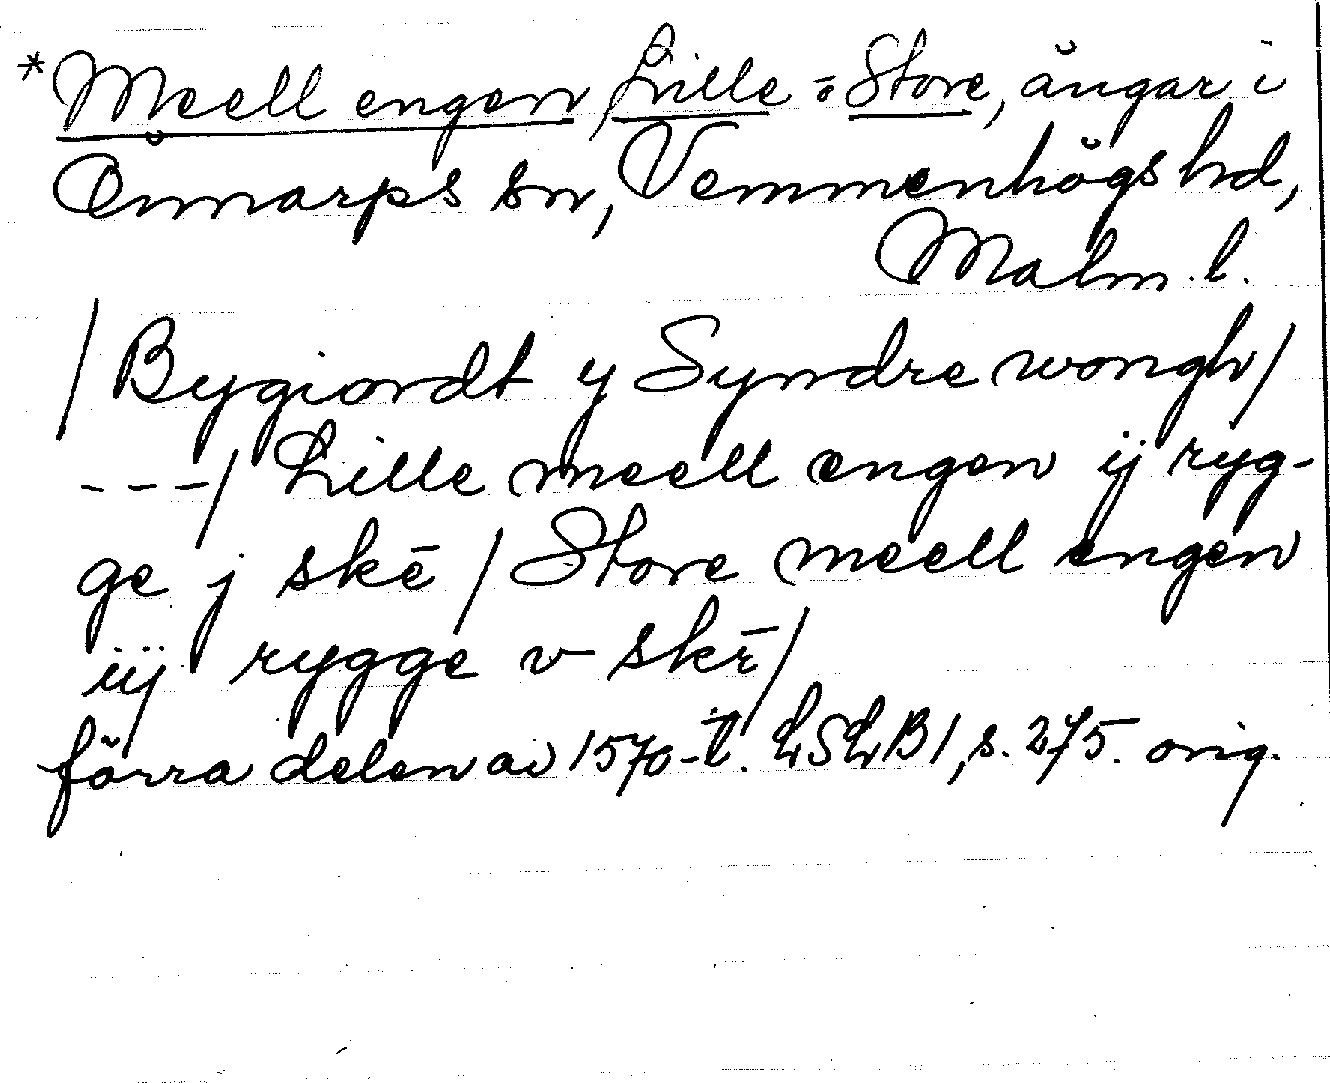 *Meell engen, Lille o Store, ängar i
Önnarps sn, Vemmenhögs hd,
Malm. l.
/ Bygiordt y Syndre wongh /
- - - / Lille meell engen ij ryg-
ge j skē / Store meell engen
iij rygge v skē /
förra delen av 1570-t. LSLB 1, s. 275. orig.